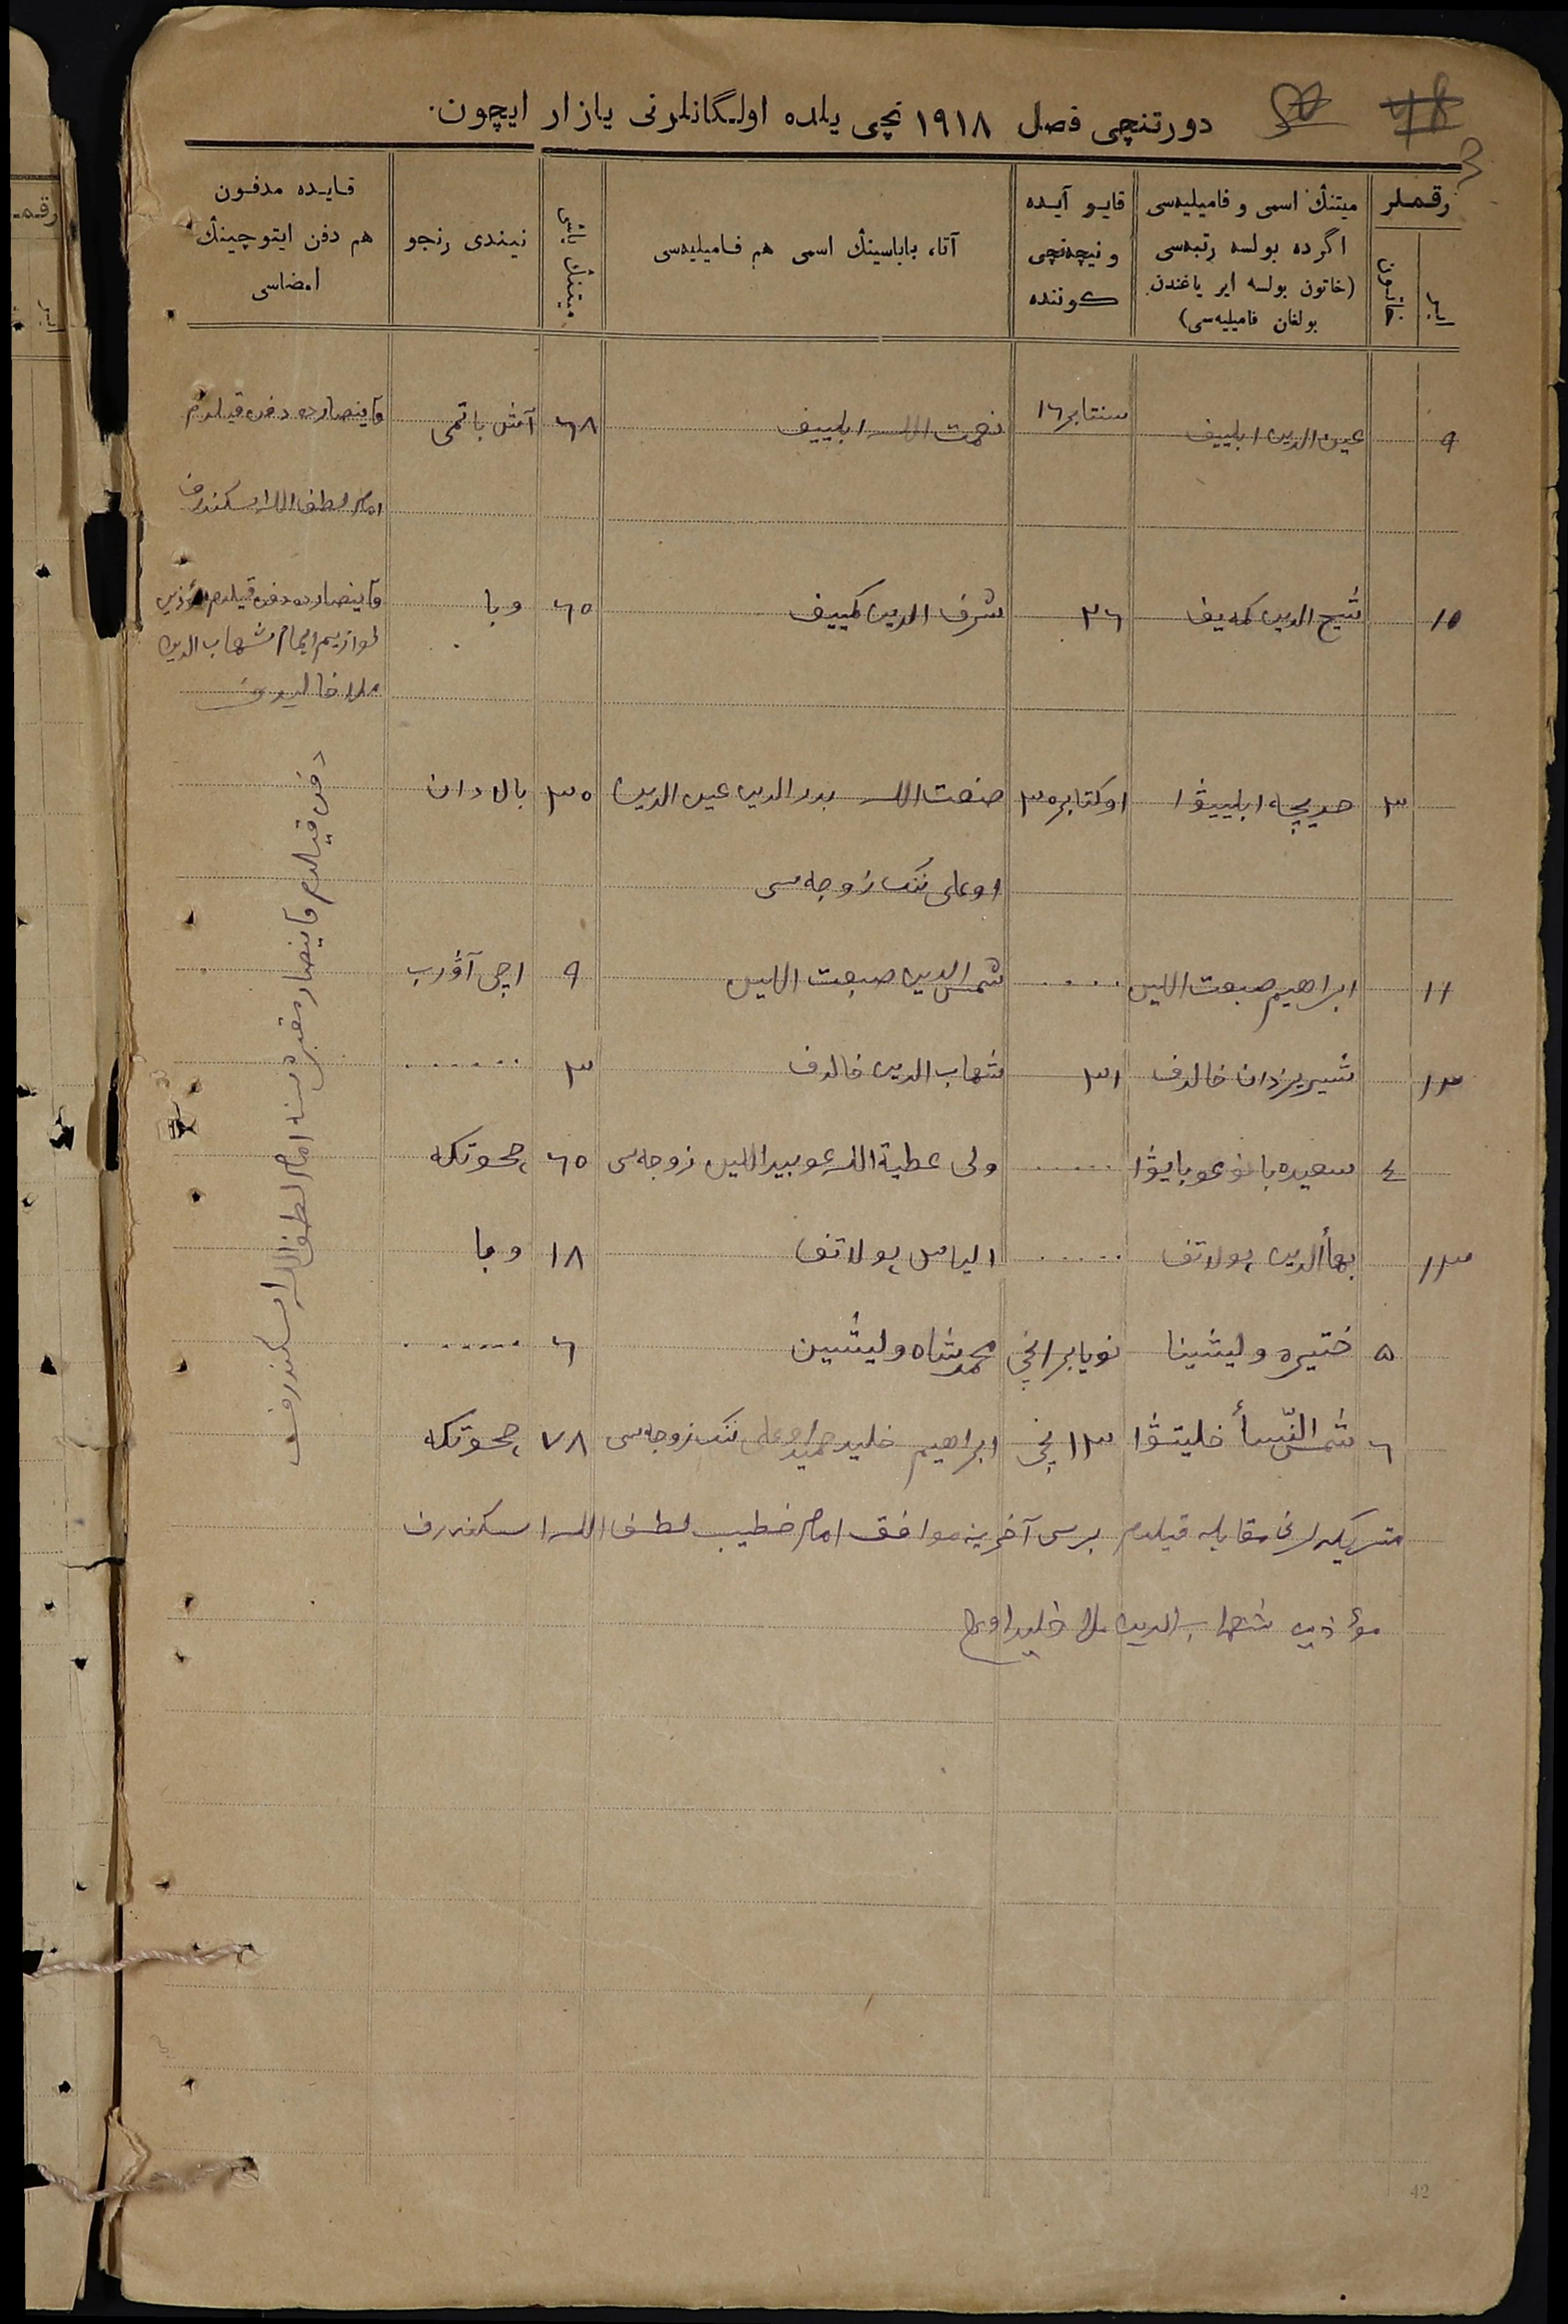 دورتنچی فصل ۱۹۱۸ نچی یلده اولـگانلرنی یازار ایچون.
رقـمـلر
ایر
خاتون
میتنڭ اسمی و فامیلیه‌سی
اگرده بولسه رتبه‌سی
(خاتون بولسه ایر یاغندن
بولغان فامیلیه‌سی)
قایـو آیـده
و نیچه‌نچی
کـوننده
آتا، باباسینڭ اسمی هم فـامیلیه‌سی
میتنڭ یاشی
نیـندی رنجو
قـایـده مدفـون
هم دفن ایتوچینڭ
امضاسی
۹ عین الدین ابلییف سنتابر ۱٦ نعمت الله ابلییف ٦۸ آش باتمی
دفن قیلدم
امام لطف الله اسکندرف
۱۰ شیخ الدین کمه‌یف ۲٦ شرف الدین کمییف ٦٥ وبا
دفن قیلدم مؤذن
شهاب الدین
ملا خالیدوف
۳ خدیجه ابلییوا اوکتابر ۳۰ صنعت الله بدرالدین عین الدین ۳٥ بالادان
اوغلی ننک زوجه‌سی
۱۱ ابراهیم صبعت اللین ..... شمس الدین صبعت اللین ۹ اچی آورب
۱۲ شیریزدان خالدف ۳۱ شهاب الدین خالدف ۳ .......
٤ سعیده بانو عوبایوا ..... ولی عطیة الله عوبیداللین زوجه‌سی ٦٥ چحوتکه
۱۳ بهأالدین پولاتف ..... الیاس پولاتف ۱۸ وبا
٥ ختیره ولیشینا نویابر انچی محمدشاه ولیشین ٦ .......
٦ شمس النّسأ خلیتوا ۱۳ نچی ابراهیم خلید حمید اوغلی ننک زوجه‌سی ۷۸ چحوتکه
دفن قیلدم مقبره‌سنه امام لطف الله اسکندرف
متریکه‌لرنی مقابله قیلدم برسی آخرینه موافق امام خطیب لطف الله اسکندرف
مؤذن شهاب الدین ملا خلیداوف
42